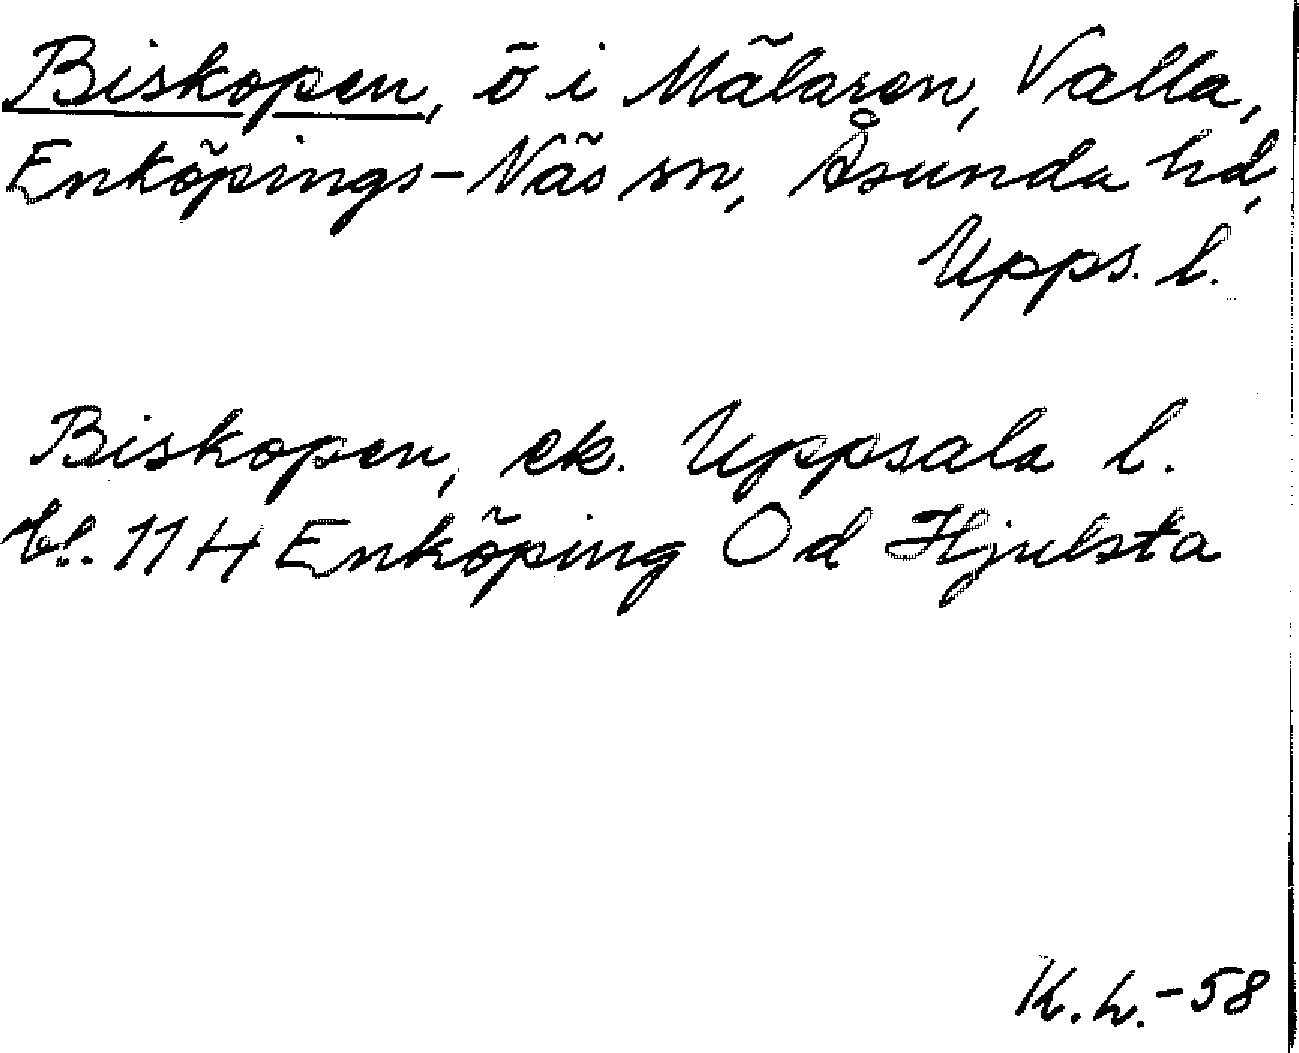 Biskopen, ö i Mälaren, Valla,
Enköpings-Näs sn, Åsunda hd,
Upps. l.
Biskopen, ek. Uppsala l.
bl. 11 H Enköping Od Hjulsta
K. L. -58